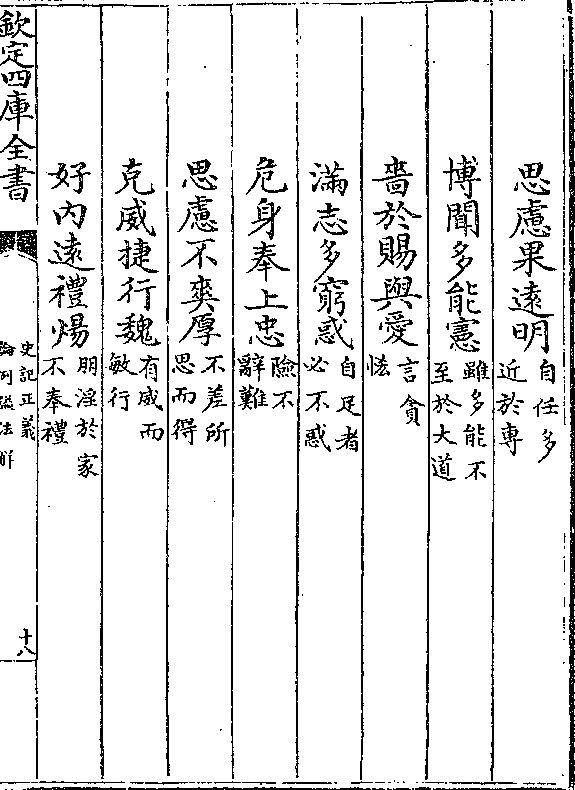 思慮果遠明自任多近於專
博聞多能憲雖多能不至於大道
嗇於賜與愛言貪恡
滿志多窮惑自足者必不惑
危身奉上忠險不辭難
思慮不爽厚不差所思而得
克威捷行魏有威而敏行
好內遠禮煬朋淫於家不奉禮
欽定四庫全書
史記正義
論例諡法解
十八